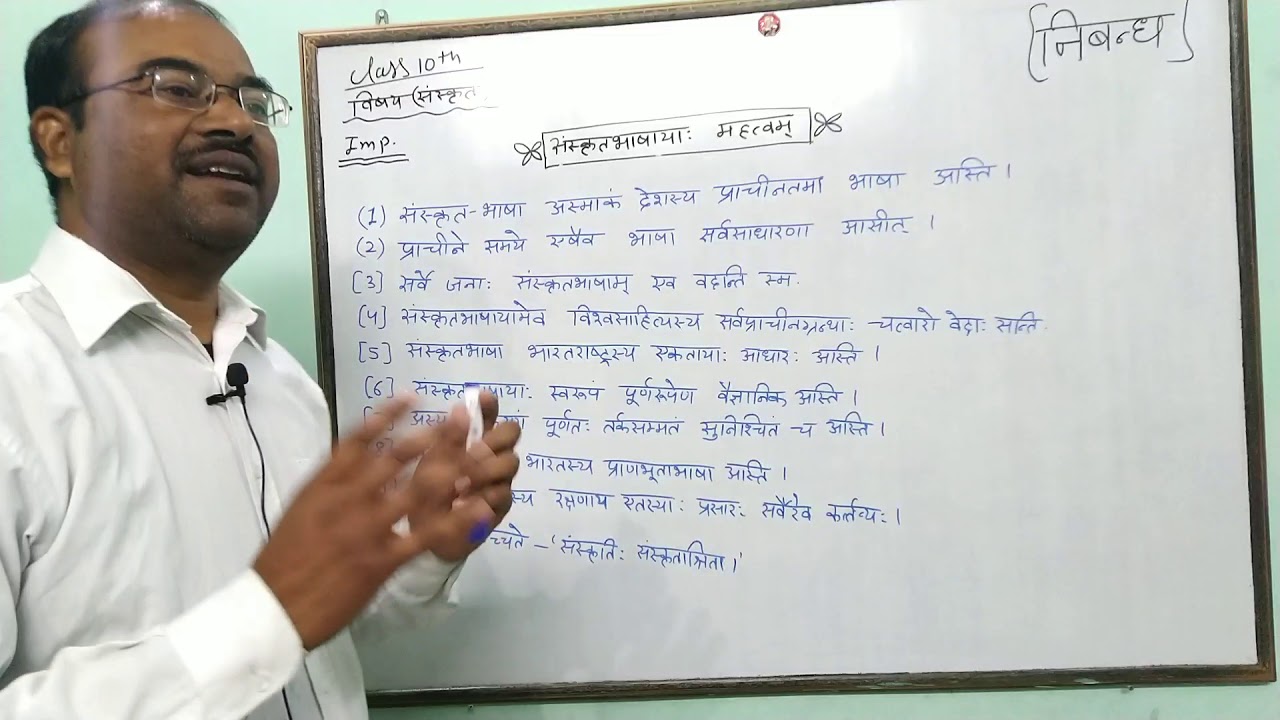 Class 10th
{निबन्ध}
विषय (संस्कृत
Imp.
संस्कृतभाषायाः महत्वम्
(1) संस्कृत-भाषा अस्माकं देशस्य प्राचीनतमा भाषा अस्ति।
(2) प्राचीने समये एषैव भाषा सर्वसाधारणा आसीत्।
[3] सर्वे जनाः संस्कृतभाषाम् एव वदन्ति स्म.
[4] संस्कृतभाषायामेव विश्वसाहित्यस्य सर्वप्राचीनग्रन्थाः चत्वारो वेदाः सन्ति.
[5] संस्कृतभाषा भारतराष्ट्रस्य एकतायाः आधारः अस्ति।
[6] स्वरूपं पूर्णरूपेण वैज्ञानिक अस्ति।
पूर्णतः तर्कसम्मतं सुनिश्चितं च अस्ति।
भारतस्य प्राणभूताभाषा अस्ति।
रक्षणाय एतस्याः प्रसारः सर्वैरेव कर्तव्यः।
– 'संस्कृतिः संस्कृताश्रिता।'